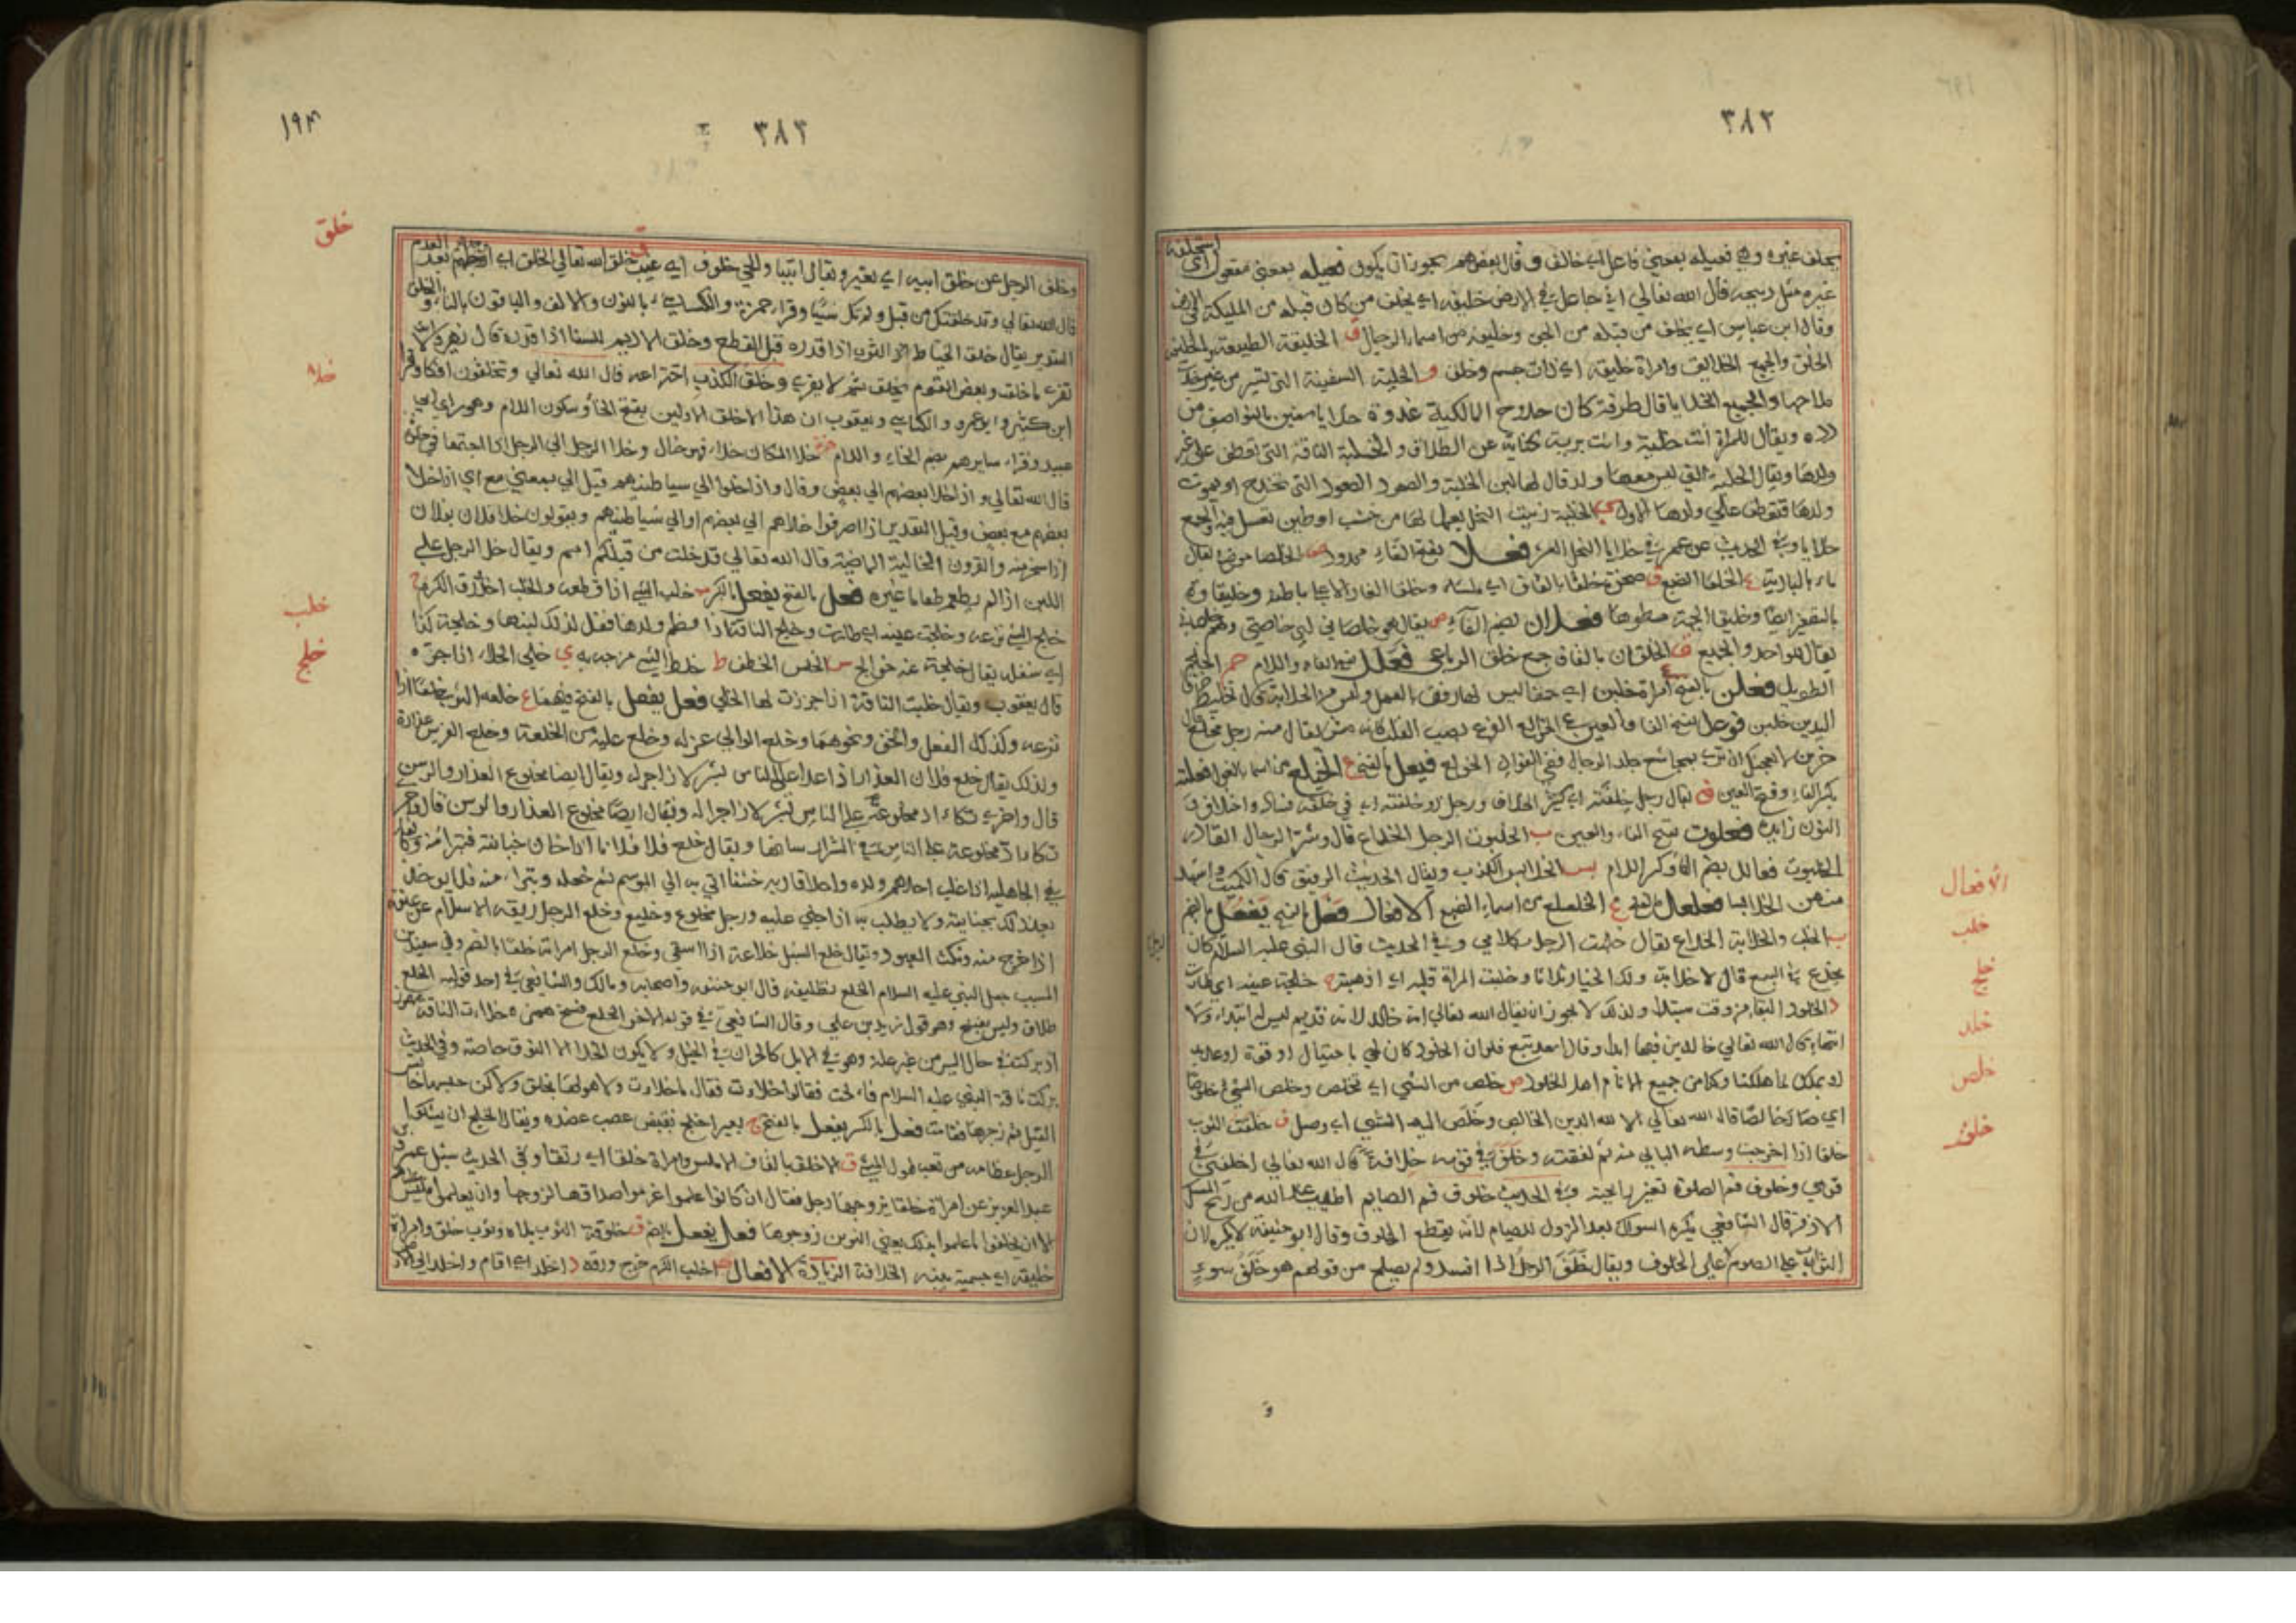 ٣٨٢
يخلف غيره وهي فعيلة بمعنى فاعل اي خالف وقال بعضهم يجوز ان يكون فعيلة بمعنى مفعول اي
غيره مثل ذبيحة قال الله تعالى اني جاعل في الارض خليفة اي يخلف من كان قبله من المليكة في الارض
وقال ابن عباس اي يخلف من قبله من الجن وخليفة من اسماء الرجال ق الخليقة الطبيعة والخليقة
الخلق والجميع الخلايق وامراة خليقة اي ذات جسم وخلق و الخلية السفينة التي تسير من غير
ملاحها والجميع الخلايا قال طرفة كان حدوج المالكية غدوة خلايا سفين بالنواصف من
دده ويقال للمراة انت خلية وانت برية كناية عن الطلاق والخلية الناقة التي تعطف على غير
ولدها ويقال الخلية التي ليس معها ولد قال لها لبن الخلية والصعود الصعود التي تخدج او يموت
ولدها فتعطف على ولدها الاول الخلية بيت النحل يعمل لها من خشب او طين تعسل فيه والجميع
خلايا وفي الحديث عن عمر في خلايا النحل العشر فعلا بفتح الفاء ممدود الخلصا موضع يقال
ماء بالبادية ع الخلعا الضبع ق صخرة خلقا بالقاف اي ملساء وخلقا الغار الاعلا باطنه وخليقاوه
بالتصغير ايضا وخليقا الجبهة مستواها فعلان بضم الفاء ص يقال هو خلصاني اي خاصتي وهم خلصاني
يقال للواحد والجميع ق الخلقان بالقاف جمع خلق الرباعي فعلل بفتح الفاء واللام جم الخلجم
الطويل فعلن بالفتح امراة خلبن اي حمقا ليس لها رفق بالعمل وليس من الخلابة قال تخليط خرقا
اليدين خلبن فوعل بفتح الفا والعين ع الخولع الفزع يصيب القلب كانه مس يقال منه رجل مخلع قال
بكسر الفاء وفتح العين ف يقال رجل خلفنة اي كثير الخلاف ورجل ذو خلفنة اي في خلقه فساد واخلاق
النون زايدة فعلوت بفتح الفاء والعين ب الخلبوت الرجل الخداع قال وشر الرجال الغادر
الخلبوت فعالل بضم الفا وكسر اللام بس الخلابس الكذب ويقال الحديث الرقيق قال الكميت واشهد
منهن الخلابسا فعلعل بالفتح ع الخلعلع من اسماء الضبع الافعال فعل بالفتح يفعل بالضم
ب الخلب والخلابة الخداع يقال خلبت الرجل بكلامي وفي الحديث قال النبي عليه السلام كان
يخدع في البيع قال لا خلابة ولك الخيار ثلاثا وخلبت المراة قلبه اي اذهبته ج خلجت عينه اي طارت
د الخلود البقا من وقت مبتدا ولذلك لا يجوز ان يقال الله تعالى انه خالد لانه قديم ليس له ابتداء ولا
انتهاء قال الله تعالى خالدين فيها ابدا وقال اسعد تبع فلو ان الخلود كان لحي باحتيال او قوة او عديد
او بملك لما هلكنا وكنا من جميع الانام اهل الخلود ص خلص من الشيء اي تخلص وخلص الشيء خلوصا
اي صار خالصا قال الله تعالى الا لله الدين الخالص وخلص اليه الشيء اي وصل ف خلفت الثوب
خلفا اذا اخرجت وسطه البالي منه ثم لفقته وخلف في قومه خلافة قال الله تعالى اخلفني في
قومي وخلوف فم الصايم تغير رايحته وفي الحديث خلوف فم الصايم اطيب عند الله من ريح المسك
الاذفر قال الشافعي يكره السواك بعد الزوال للصيام لانه يقطع الخلوف وقال ابو حنيفة لا يكره لان
الثواب على الصوم لا على الخلوف ويقال خلف الرجل اذا افسد ولم يصلح من قولهم هو خلف سوء
الافعال
خلب
خلج
خلد
خلص
خلف
و
٣٨٣
١٩٣
وخلف الرجل عن خلق ابيه اي تغير ويقال اتيتنا والحي خلوف اي غيب ق خلق الله تعالى الخلق اي اوجدهم بعد العدم
قال الله تعالى وقد خلقتك من قبل ولم تك شيئا وقرا حمزة والكسائي بالنون والالف والباقون بالتاء والخلق
التقدير يقال خلق الخياط الثوب اذا قدره قبل القطع وخلق الاديم للسقا اذا قدره قال زهير
تفري ما خلقت وبعض القوم يخلق ثم لا يفري وخلق الكذب اختراعه قال الله تعالى وتخلقون افكا وقرا
ابن كثير وابو عمرو والكسائي ويعقوب ان هذا الا خلق الاولين بفتح الخا وسكون اللام وهو راي ابي
عبيد وقراء سايرهم بضم الخاء واللام خلا المكان خلاء فهو خال وخلا الرجل الى الرجل اذا اجتمعا في خلوة
قال الله تعالى واذا خلا بعضهم الى بعض وقال واذا خلوا الى شياطينهم قيل الى بمعنى مع اي اذا خلا
بعضهم مع بعض وقيل التقدير اذا صرفوا خلاهم الى بعضهم او الى شياطينهم ويقولون خلا فلان بفلان
اذا سخر منه والقرون الخالية الماضية قال الله تعالى قد خلت من قبلكم امم ويقال خلا الرجل على
اللبن اذا لم يطعم طعاما غيره فعل بالفتح يفعل بالكسر ب خلب الشيء اذا قطعه والخلب
خلج الشيء نزعه وخلجت عينه اي طارت وخلج الناقة اذا فطم ولدها فقل لذلك لبنها وخلجه كذا
اي شغله يقال خلجته عنه خوالج س الخلس الخطف ط خلط الشيء مزجه به ي خلى الخلا اذا جزه
قال يعقوب ويقال خليت الناقة اذا جززت لها الخلي فعل يفعل بالفتح فيهما ع خلعه الثوب خلعا اذا
نزعه وكذلك النعل والخف ونحوهما وخلع الوالي عزله وخلع عليه من الخلعة وخلع الفرس عذاره
ولذلك يقال خلع فلان العذار اذا عدا على الناس بشر لا زاجر له ويقال ايضا مخلوع العذار والرسن
قال واخرى تكاء اد مخلوعة على الناس بشر لا زاجر له ويقال ايضا مخلوع العذار والرسن قال واخر
تكاءاد مخلوعة على الناس في الشر ارسانها ويقال خلع فلان فلانا اذا خاف جنايته فتبرا منه وكانوا
في الجاهلية اذا غلب احدهم ولده واحلافه اتي به الى الموسم ثم خلعه وتبراء منه فلا يوخذ
بعد ذلك بجنايته ولا يطلب به اذا جني عليه ورجل مخلوع وخليع وخلع الرجل ربقة الاسلام عن عنقه
اذا خرج منه ونكث العهود ويقال خلع السنبل خلاعة اذا اسفى وخلع الرجل امراته خلعا بالضم
المسيب جعل النبي عليه السلام الخلع تطليقة قال ابو حنيفة واصحابه ومالك والشافعي في احد قوليه الخلع
طلاق وليس بفسخ وهو قول زيد بن علي وقال الشافعي في قوله الاخر الخلع فسخ همز ه خلاءت الناقة مهموز
اذ بركت في حال السير من غير علة وهو في الابل كالحران في الخيل ولا يكون الخلا الا النوق خاصة وفي الحديث
بركت ناقة النبي عليه السلام فالحت فقالوا خلاءت فقال ما خلاءت وما هو لها بخلق ولاكن حبسها حابس
الفيل ثم زجرها فقامت فعل بالكسر يفعل بالفتح ج بعير اخلج تقبض عصب عضده ويقال الخلج ان يشتكي
الرجل عظامه من تعب طول المشي ق الاخلق بالقاف الاملس وامراة خلقا اي رتقا وفي الحديث سئل عمر بن
عبد العزيز عن امراة خلقا تزوجها رجل فقال ان كانوا علموا غرموا صداقها لزوجها وان لم يعلموا فليس
الا ان يحلفوا ما علموا بذلك يعني الذين زوجوها فعل يفعل بالضم ق خلوقة الثوب بلاه وثوب خلق وامراة
خليقة اي جسيمة بينه الخلاقة الزيادة الافعال ب اخلب الكرم خرج ورقه د اخلد اي اقام واخلد الى الارض
خلق
خلا
خلب
خلج